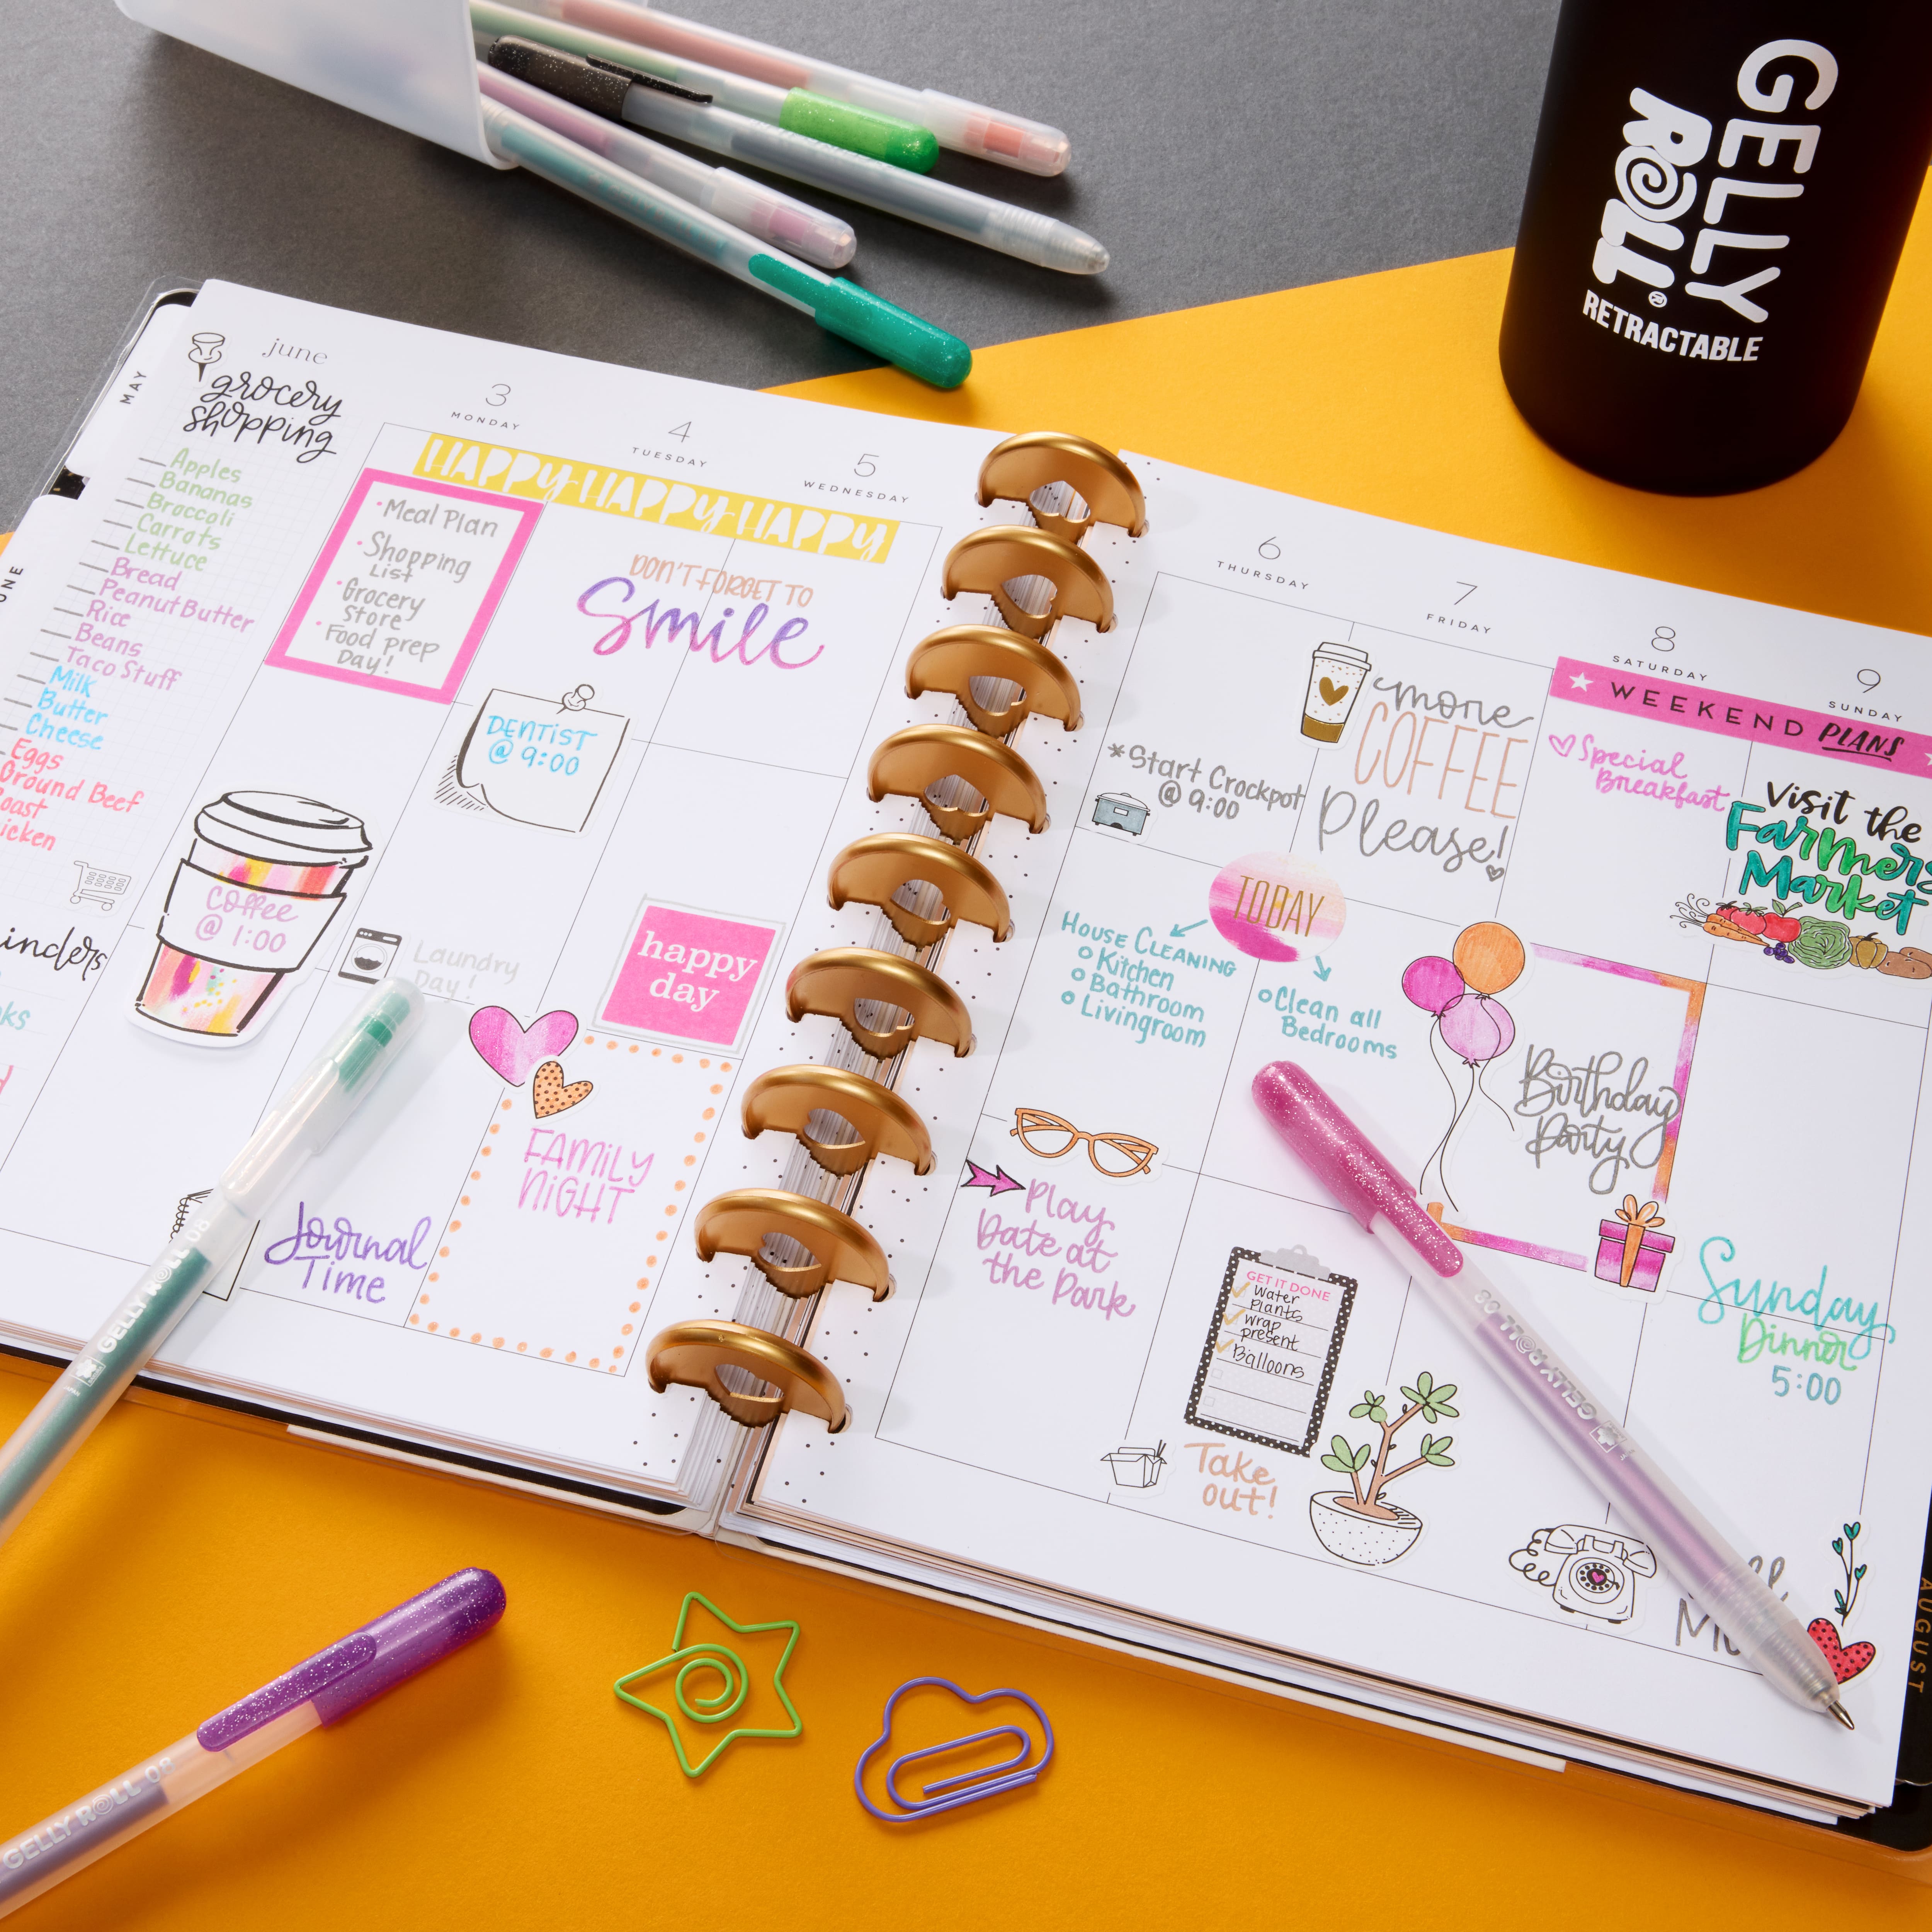 GELLY
ROLL®
RETRACTABLE
MAY
june
grocery
shopping
Apples
Bananas
Broccoli
Carrots
Lettuce
Bread
Peanut Butter
Rice
Beans
Taco Stuff
Milk
Butter
Cheese
Eggs
Ground Beef
3
MONDAY
4
TUESDAY
5
WEDNESDAY
HAPPY HAPPY HAPPY
• Meal Plan
• Shopping
List
• Grocery
Store
• Food prep
Day!
Coffee
@ 1:00
DENTIST
@ 9:00
Laundry
Day!
Journal
Time
DON'T FORGET TO
Smile
happy
day
FAMILY
NIGHT
6
THURSDAY
7
FRIDAY
8
SATURDAY
9
SUNDAY
*Start Crockpot
@ 9:00
TODAY
HOUSE CLEANING
Kitchen
Bathroom
Livingroom
Play
Date at
the Park
more
COFFEE
Please!
Clean all
Bedrooms
GET IT DONE
Water
plants
wrap
present
Balloons
Take
out!
WEEKEND PLANS
Special
Breakfast
Birthday
Party
Visit the
Farmers
Market
Sunday
Dinner
5:00
AUGUST
GELLY ROLL 08
GELLY ROLL 08
GELLY ROLL 08